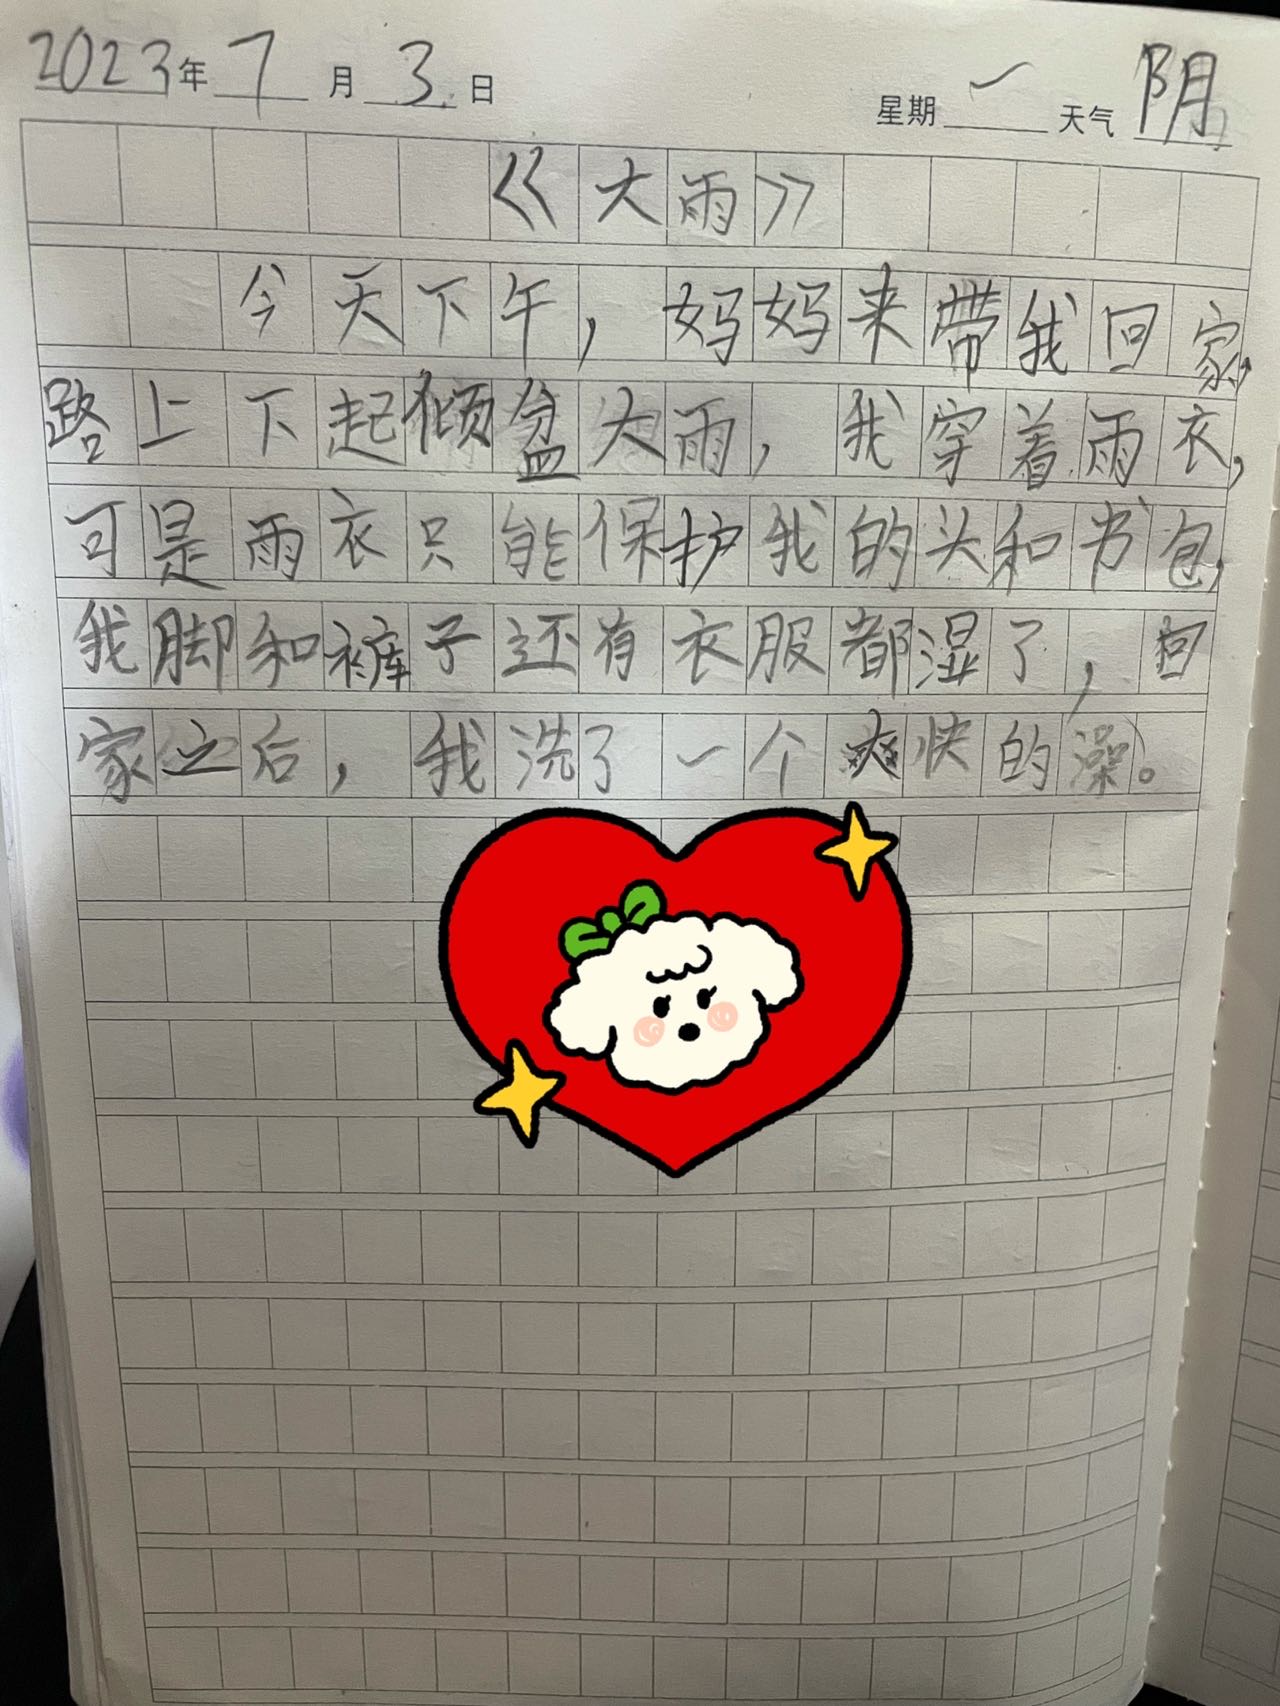 2023年7月3日 星期一 天气阴
《大雨》
今天下午,妈妈来带我回家,
路上下起倾盆大雨,我穿着雨衣,
可是雨衣只能保护我的头和书包,
我脚和裤子还有衣服都湿了,回
家之后,我洗了一个爽快的澡。